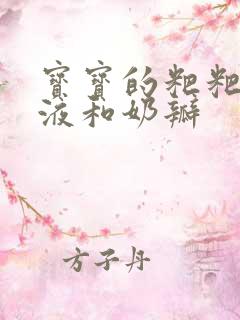 寶寶的粑粑
液和奶辦
方子丹